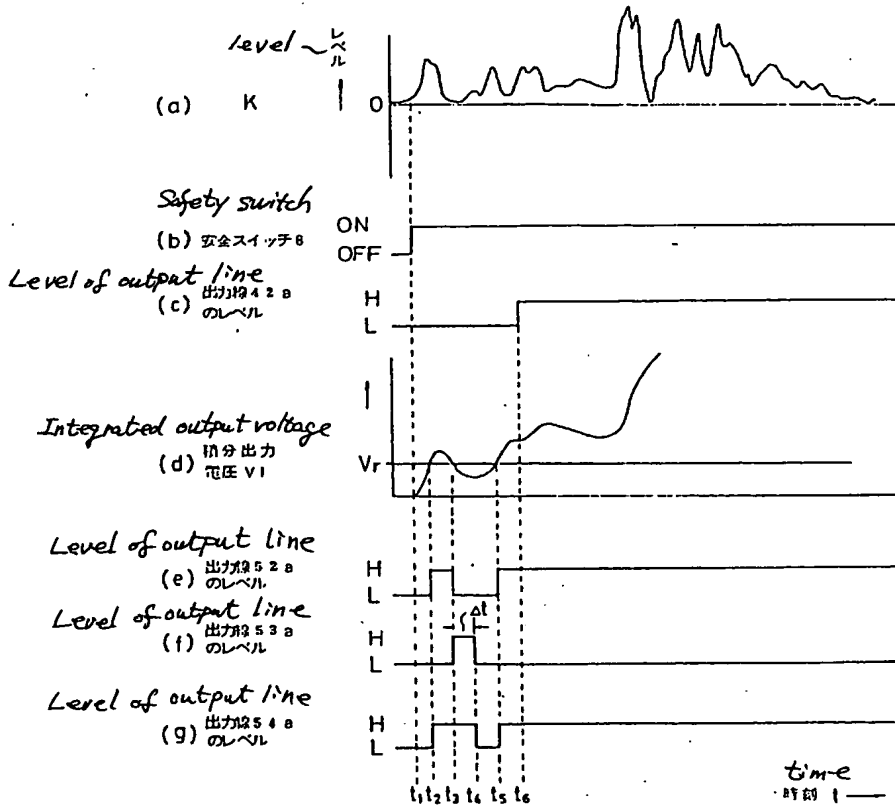 level レベル
(a) K 0
Safety switch
ON
(b) 安全スイッチ6
OFF
Level of output line
(c) 出力線42a
のレベル
H
L
Integrated output voltage
(d) 積分出力
電圧VI
Vr
Level of output line
(e) 出力線52a
のレベル
H
L
Level of output line
Δt
(f) 出力線53a
のレベル
H
L
Level of output line
(g) 出力線54a
のレベル
H
L
t1 t2 t3 t4 t5 t6
time
時刻 t